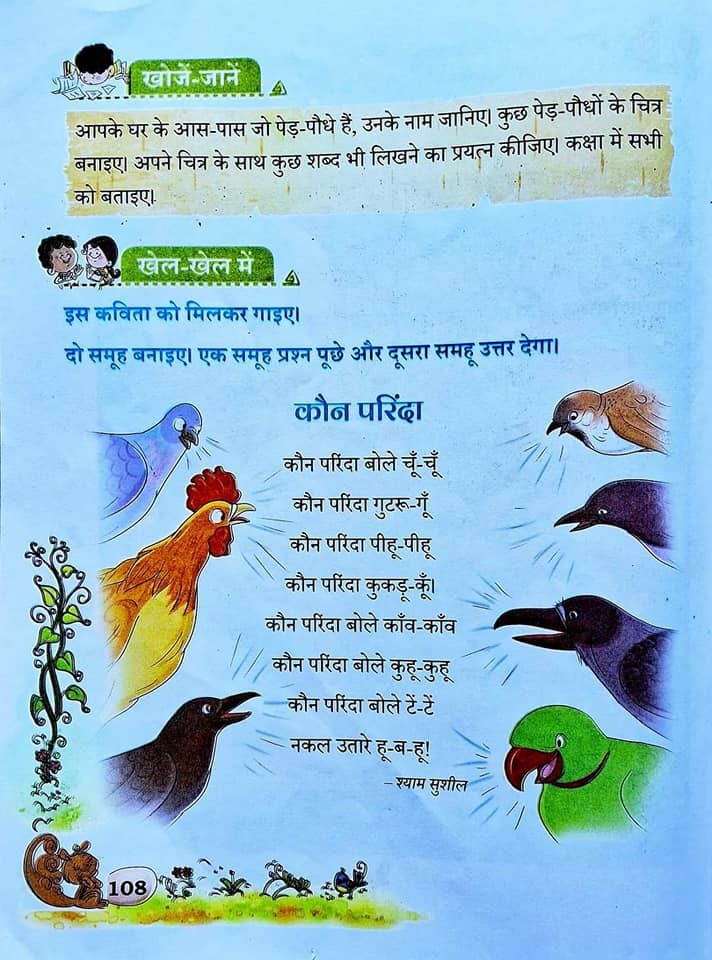 खोजें-जानें
आपके घर के आस-पास जो पेड़-पौधे हैं, उनके नाम जानिए। कुछ पेड़-पौधों के चित्र
बनाइए। अपने चित्र के साथ कुछ शब्द भी लिखने का प्रयत्न कीजिए। कक्षा में सभी
को बताइए।
खेल-खेल में
इस कविता को मिलकर गाइए।
दो समूह बनाइए। एक समूह प्रश्न पूछे और दूसरा समहू उत्तर देगा।
कौन परिंदा
कौन परिंदा बोले चूँ-चूँ
कौन परिंदा गुटरू-गूँ
कौन परिंदा पीहू-पीहू
कौन परिंदा कुकड़ू-कूँ।
कौन परिंदा बोले काँव-काँव
कौन परिंदा बोले कुहू-कुहू
कौन परिंदा बोले टें-टें
नकल उतारे हू-ब-हू!
– श्याम सुशील
108